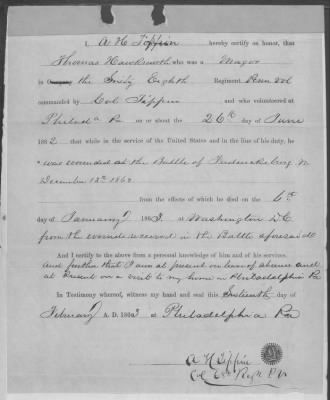 I, A H Tippin hereby certify on honor, that
Thomas Hawksworth who was a Major
in Company the Sixty Eighth Regiment Penn Vol
commanded by Col Tippin and who volunteered at
Philada Pa on or about the 26th day of June
1862 that while in the service of the United States and in the line of his duty, he
was wounded at the Battle of Fredericksburg
December 13th 1862
from the effects of which he died on the 6th
day of January 1863, at Washington D.C
from the wounds received in the Battle aforesaid
And I certify to the above from a personal knowledge of him and of his services.
And further that I am at present on leave of absence and
at present on a visit to my home in Philadelphia Pa
In Testimony whereof, witness my hand and seal this Sixteenth day of
February A. D. 1863 at Philadelphia Pa
A H Tippin
Col Regt P V